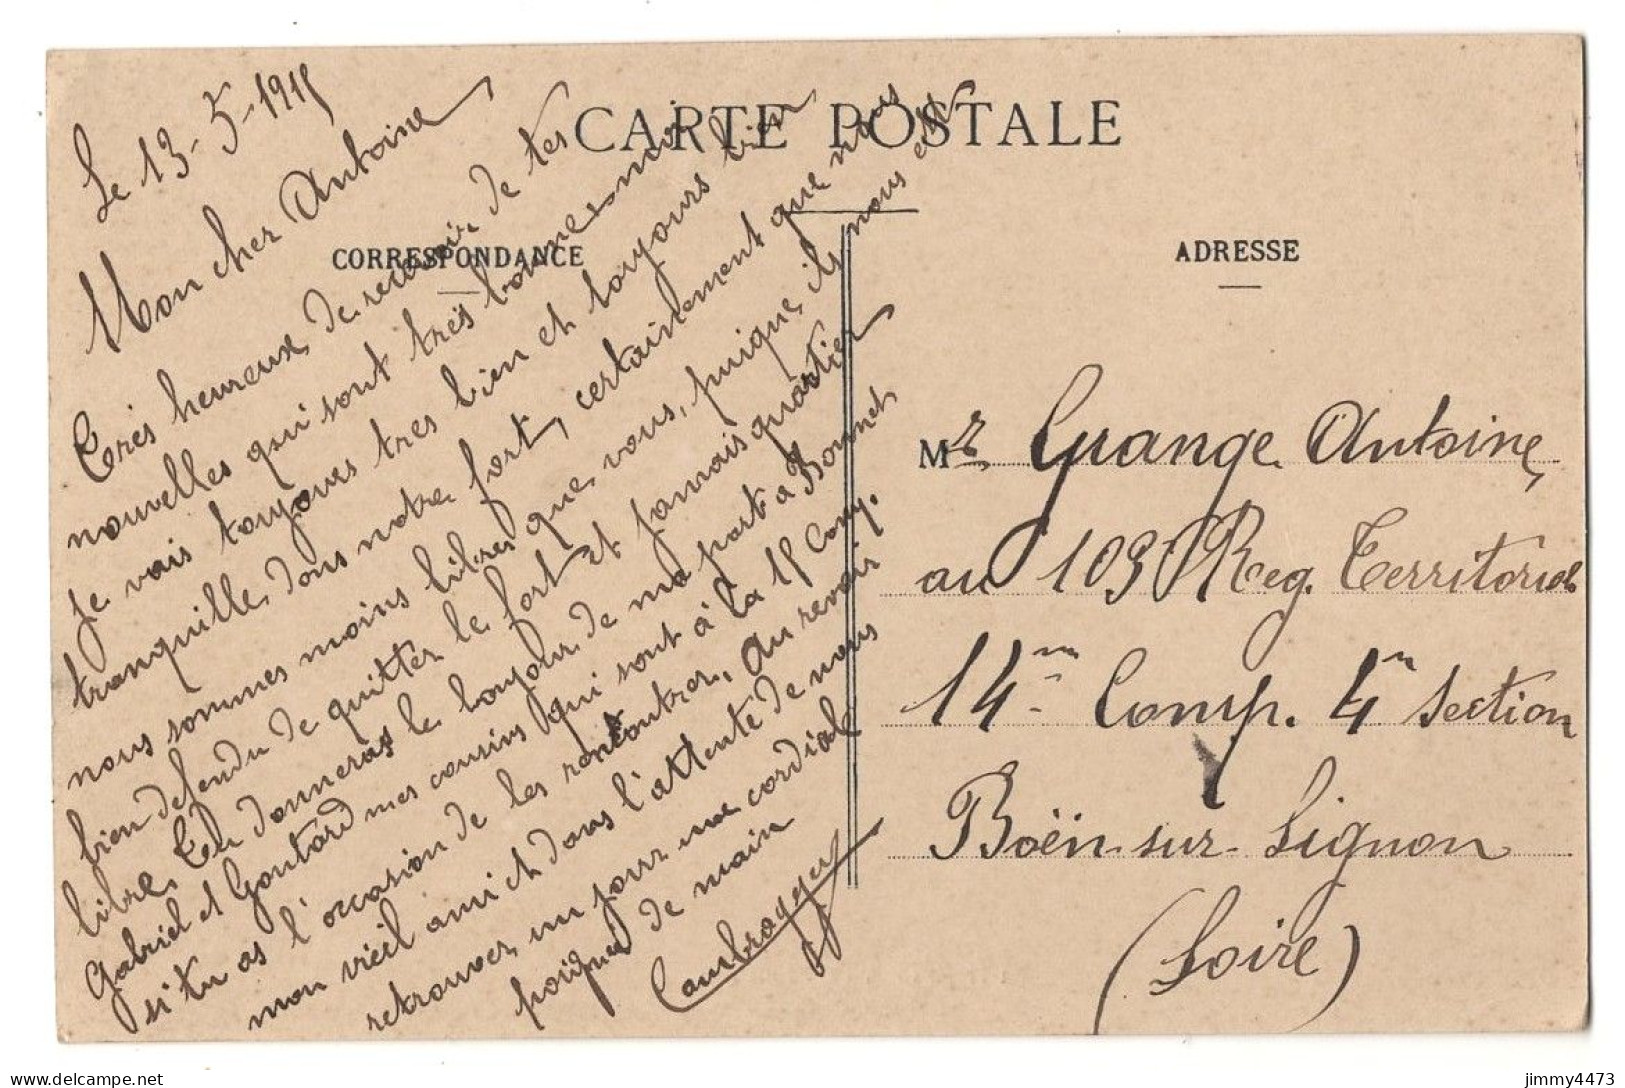 CARTE POSTALE
CORRESPONDANCE
ADRESSE
Le 13-5-1915
Mon cher Antoine
Très heureux de recevoir de tes
nouvelles qui sont très bonne, moi
je vais toujours très bien et toujours bien
tranquille dans notre fort, certainement que nous
nous sommes moins libres que vous, puique ils nous est
bien defendu de quitter le fort et jamais quartier
libre. Tu donneras le bonjour de ma part à Bonnet
Gabriel et Goutard mes cousins qui sont à la 15 Comp.
si tu as l'occasion de les rencontrer, Au revoir
mon vieil ami et dans l'attente de nous
retrouver un jour une cordiale
poignée de main
Mr Grange Antoine
au 109 Reg. Territorial
14m Comp. 4m section
Boën-sur-Lignon
(Loire)
jimmy4473